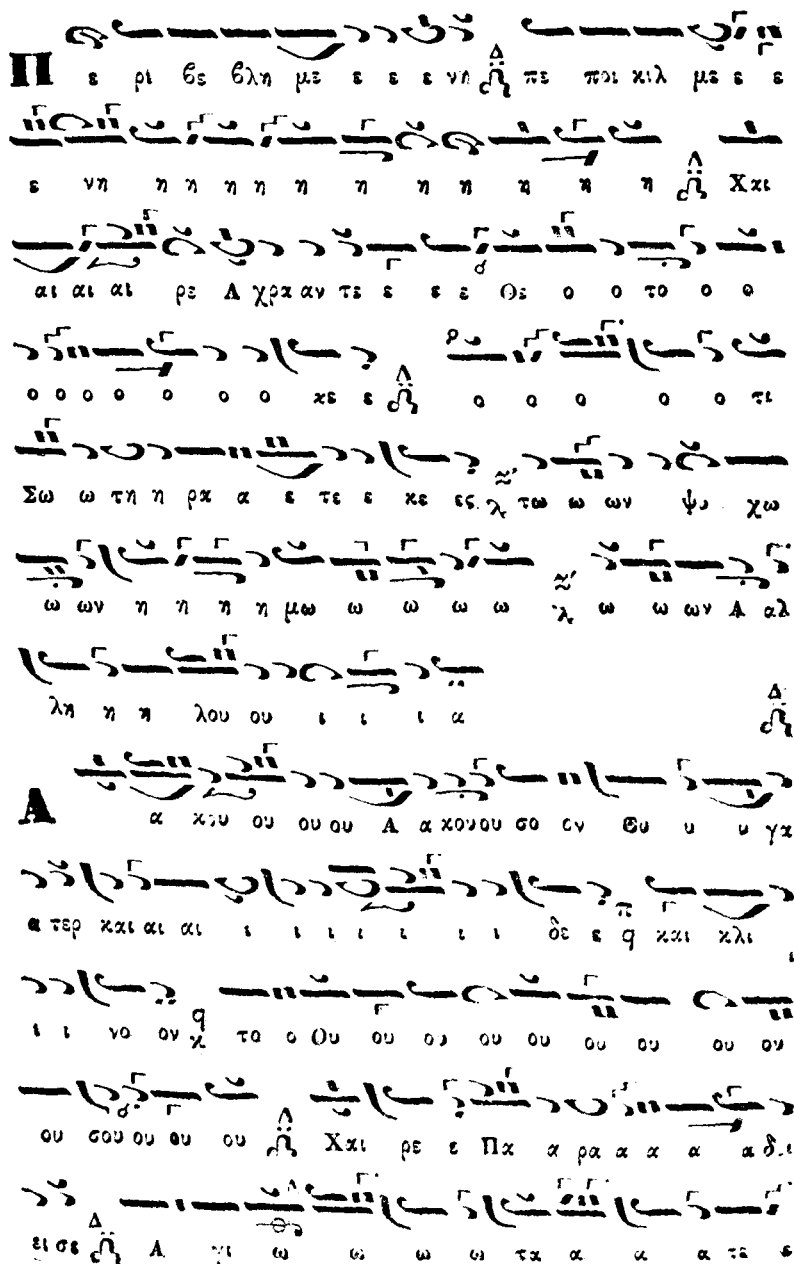 Π ε ρι βε βλη με ε ε ε νη Δ πε ποι κιλ με ε ε
ε νη η η η η η η η η η η Δ Χαι
αι αι αι ρε Α χρα αν τε ε ε ε Θε ο ο το ο ο
ο ο ο ο ο ο ο κε ε Δ ο ο ο ο ο τι
Σω ω τη η ρα α ε τε ε κε ες τω ω ων ψυ χω
ω ων η η η η μω ω ω ω ω ω ω ων Α αλ
λη η η λου ου ι ι ι α Δ
Α α κου ου ου ου Α α κουου σο ον θυ υ υ γα
α τερ και αι αι ι ι ι ι ι ι ι δε ε π q και κλι ι
ι ι νο ον q το ο Ου ου ου ου ου ου ου ου ου
ου σου ου ου ου Δ Χαι ρε ε Πα α ρα α α α α δ ι
ει σε Δ Α γι ω ω ω ω τα α α α τε ε